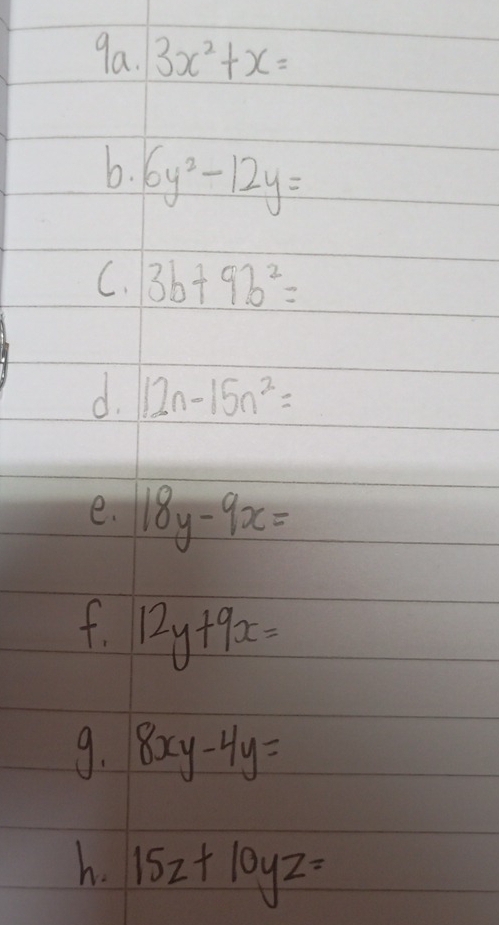 9a. 3x²+x=
b. 6y²-12y=
c. 3b+9b²=
d. 12n-15n²=
e. 18y-9x=
f. 12y+9x=
g. 8xy-4y=
h. 15z+10yz=